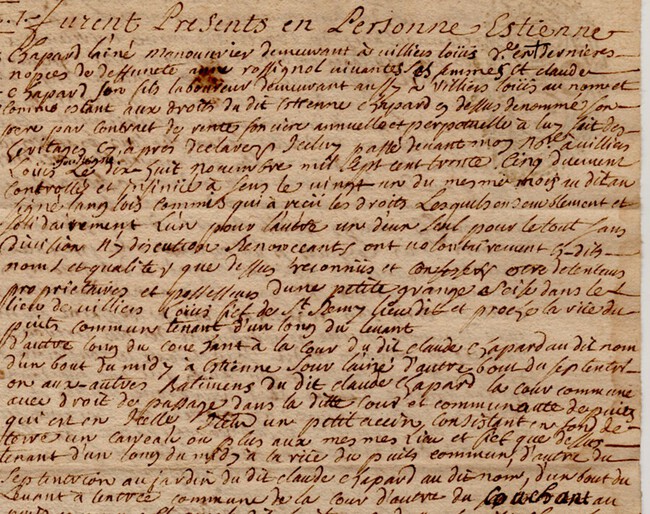 furent Presents en Personne Estienne
Chapard laîné manouvrier demeurant à villiers Loüis v.e en dernieres
nopces de deffuncte anne rossignol vivante sa femme Et claude
chapard son fils laboureur demeurant aussy à villiers Loüis au nom et
comme estant aux droits du dit Estienne chapard cy dessus denommé son
pere par contract de rente fonciere annuelle et perpetuelle à luy fait des
heritages cy après declarez Iceluy passé devant moy No.re à villiers
Loüis soussigné Le dix huit novembre mil sept cent trente Cinq duement
controllé et insinüé à sens le vingt un du mesme mois au dit an
signé Langlois commis qui à reçu les droits Lesquels ensemblement et
solidairement L'un pour L'autre un d'eux seul pour le tout sans
division Ny discution Renonceants ont volontairement es dits
noms et qualitéz que dessus reconnüs et confessés estre detenteurs
proprietaires et possesseurs d'une petite grange scise dans le
lieu de villiers Loüis fief de S.t Remy lieu dit et proche la rüe du
puits commun tenant d'un long du levant
d'autre long du couchant à la cour du dit claude chapard au dit nom
d'un bout du midy à Estienne d'autre bout du septentri-
on aux autres Batimens du dit claude chapard la cour commune
avec droit de passage dans la ditte cour et communauté de puits
qui est en Icelle Item un petit accin, Consistant en fond de
terre un careau ou plus aux mesmes Lieu et fief que dessus
tenant d'un long du midy à la rüe du puits commun, d'autre du
septentrion au jardin du dit claude chapard au dit nom, d'un bout du
Levant à lentrée commune de la cour d'autre du Couchant au